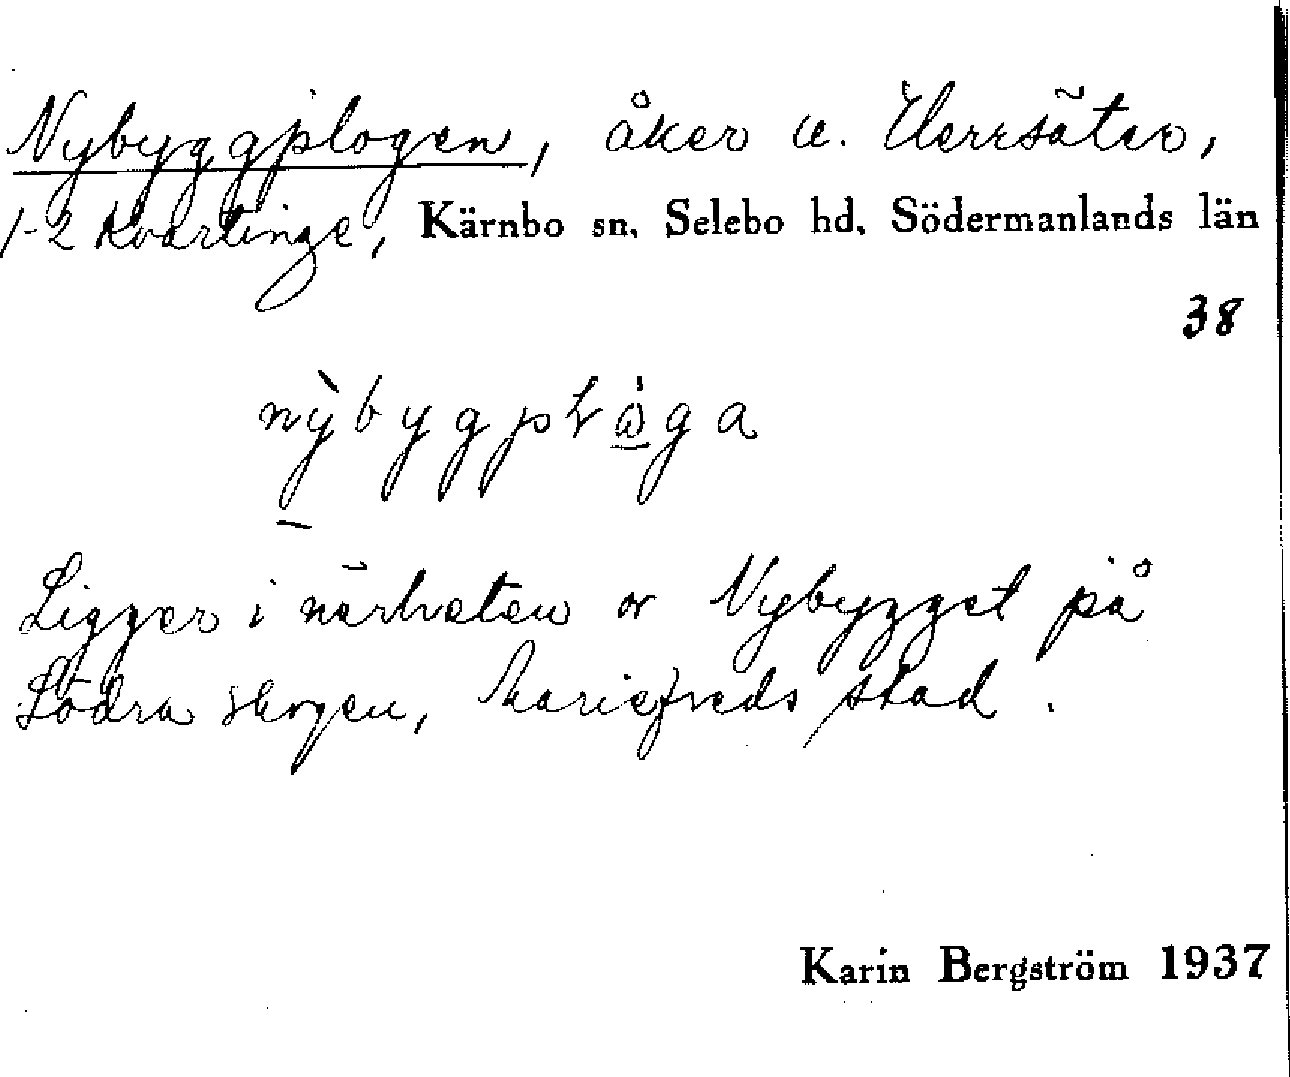 Nybyggplogen, åker u. Herrsäter,
1-2 Kvartinge, Kärnbo sn. Selebo hd. Södermanlands län
38
Ligger i närheten av Nybygget på
Södra skogen, Mariefreds stad.
Karin Bergström 1937